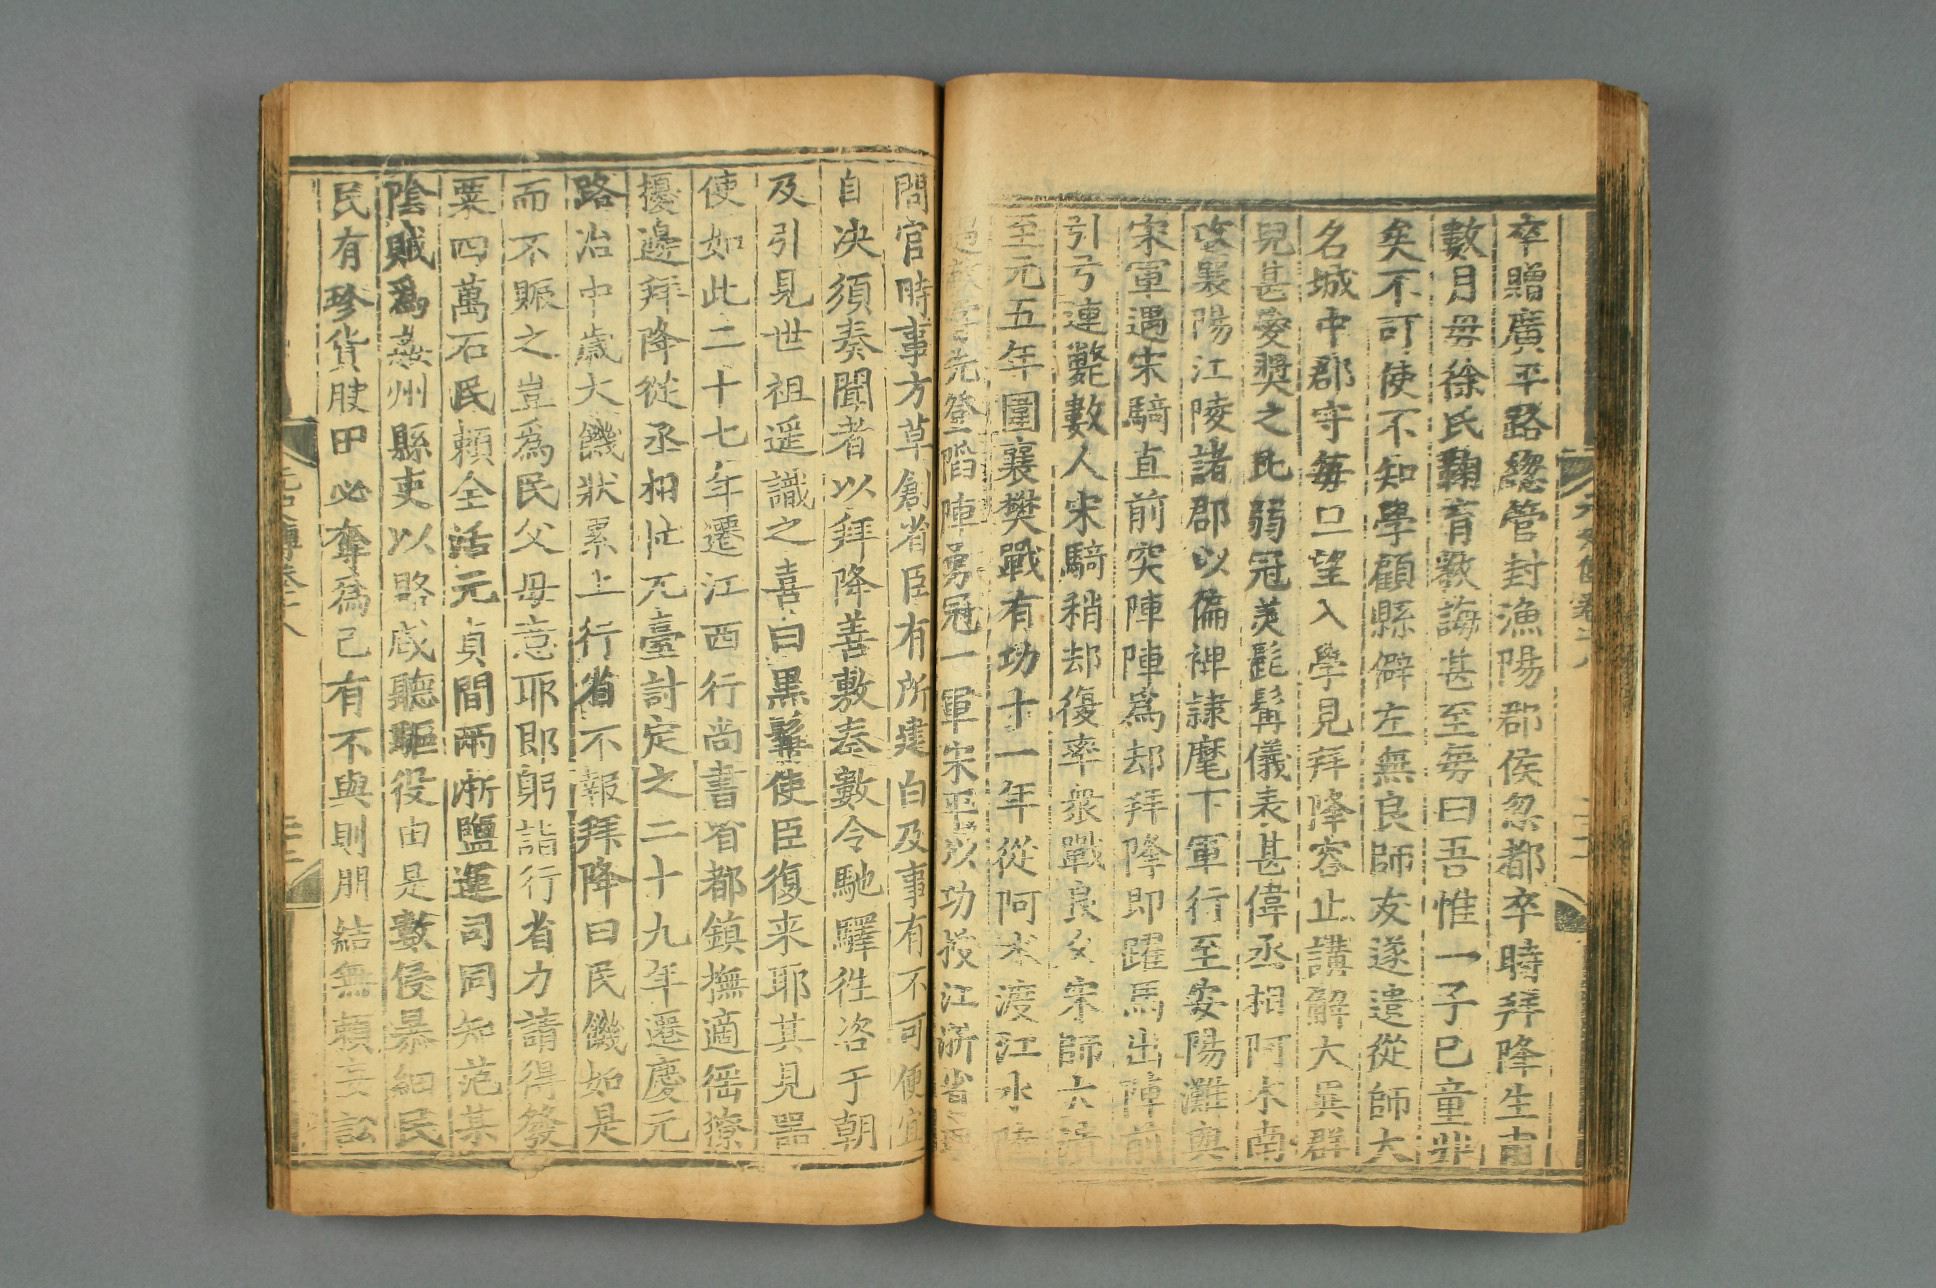 卒贈廣平路緫管封漁陽郡侯忽都卒時拜降生甫
數月母徐氏鞠育敎誨甚至每曰吾惟一子已童丱
矣不可使不知學顧縣僻左無良師友遂遣從師大
名城中郡守每旦望入學見拜降容止講解大異群
兒甚愛奬之比弱冠美髭髯儀表甚偉丞相阿木南
攻襄陽江陵諸郡以偏裨隷麾下軍行至安陽灘與
宋軍遇宋騎直前突陣陣爲却拜降即躍馬出陣前
引弓連斃數人宋騎稍却復率衆戰良久宋師大潰
至元五年圍襄樊戰有功十一年從阿木渡江水陸
先登陷陣勇冠一軍宋平以功授江浙省
問官時事方草創省臣有所建白及事有不可便宜
自决須奏聞者以拜降善敷奏數令馳驛徃咨于朝
及引見世祖遥識之喜曰黒髯使臣復来耶其見器
使如此二十七年遷江西行尚書省都鎮撫適徭獠
擾邊拜降從丞相忙兀臺討定之二十九年遷慶元
路治中歲大饑狀累上行省不報拜降曰民饑如是
而不賑之豈爲民父母意耶即躬詣行省力請得發
粟四萬石民頼全活元貞間兩浙鹽運司同知范某
陰賊爲姦州縣吏以賂咸聽驅役由是數侵暴細民
民有珍貨腴田必奪爲己有不與則朋結無頼妄訟